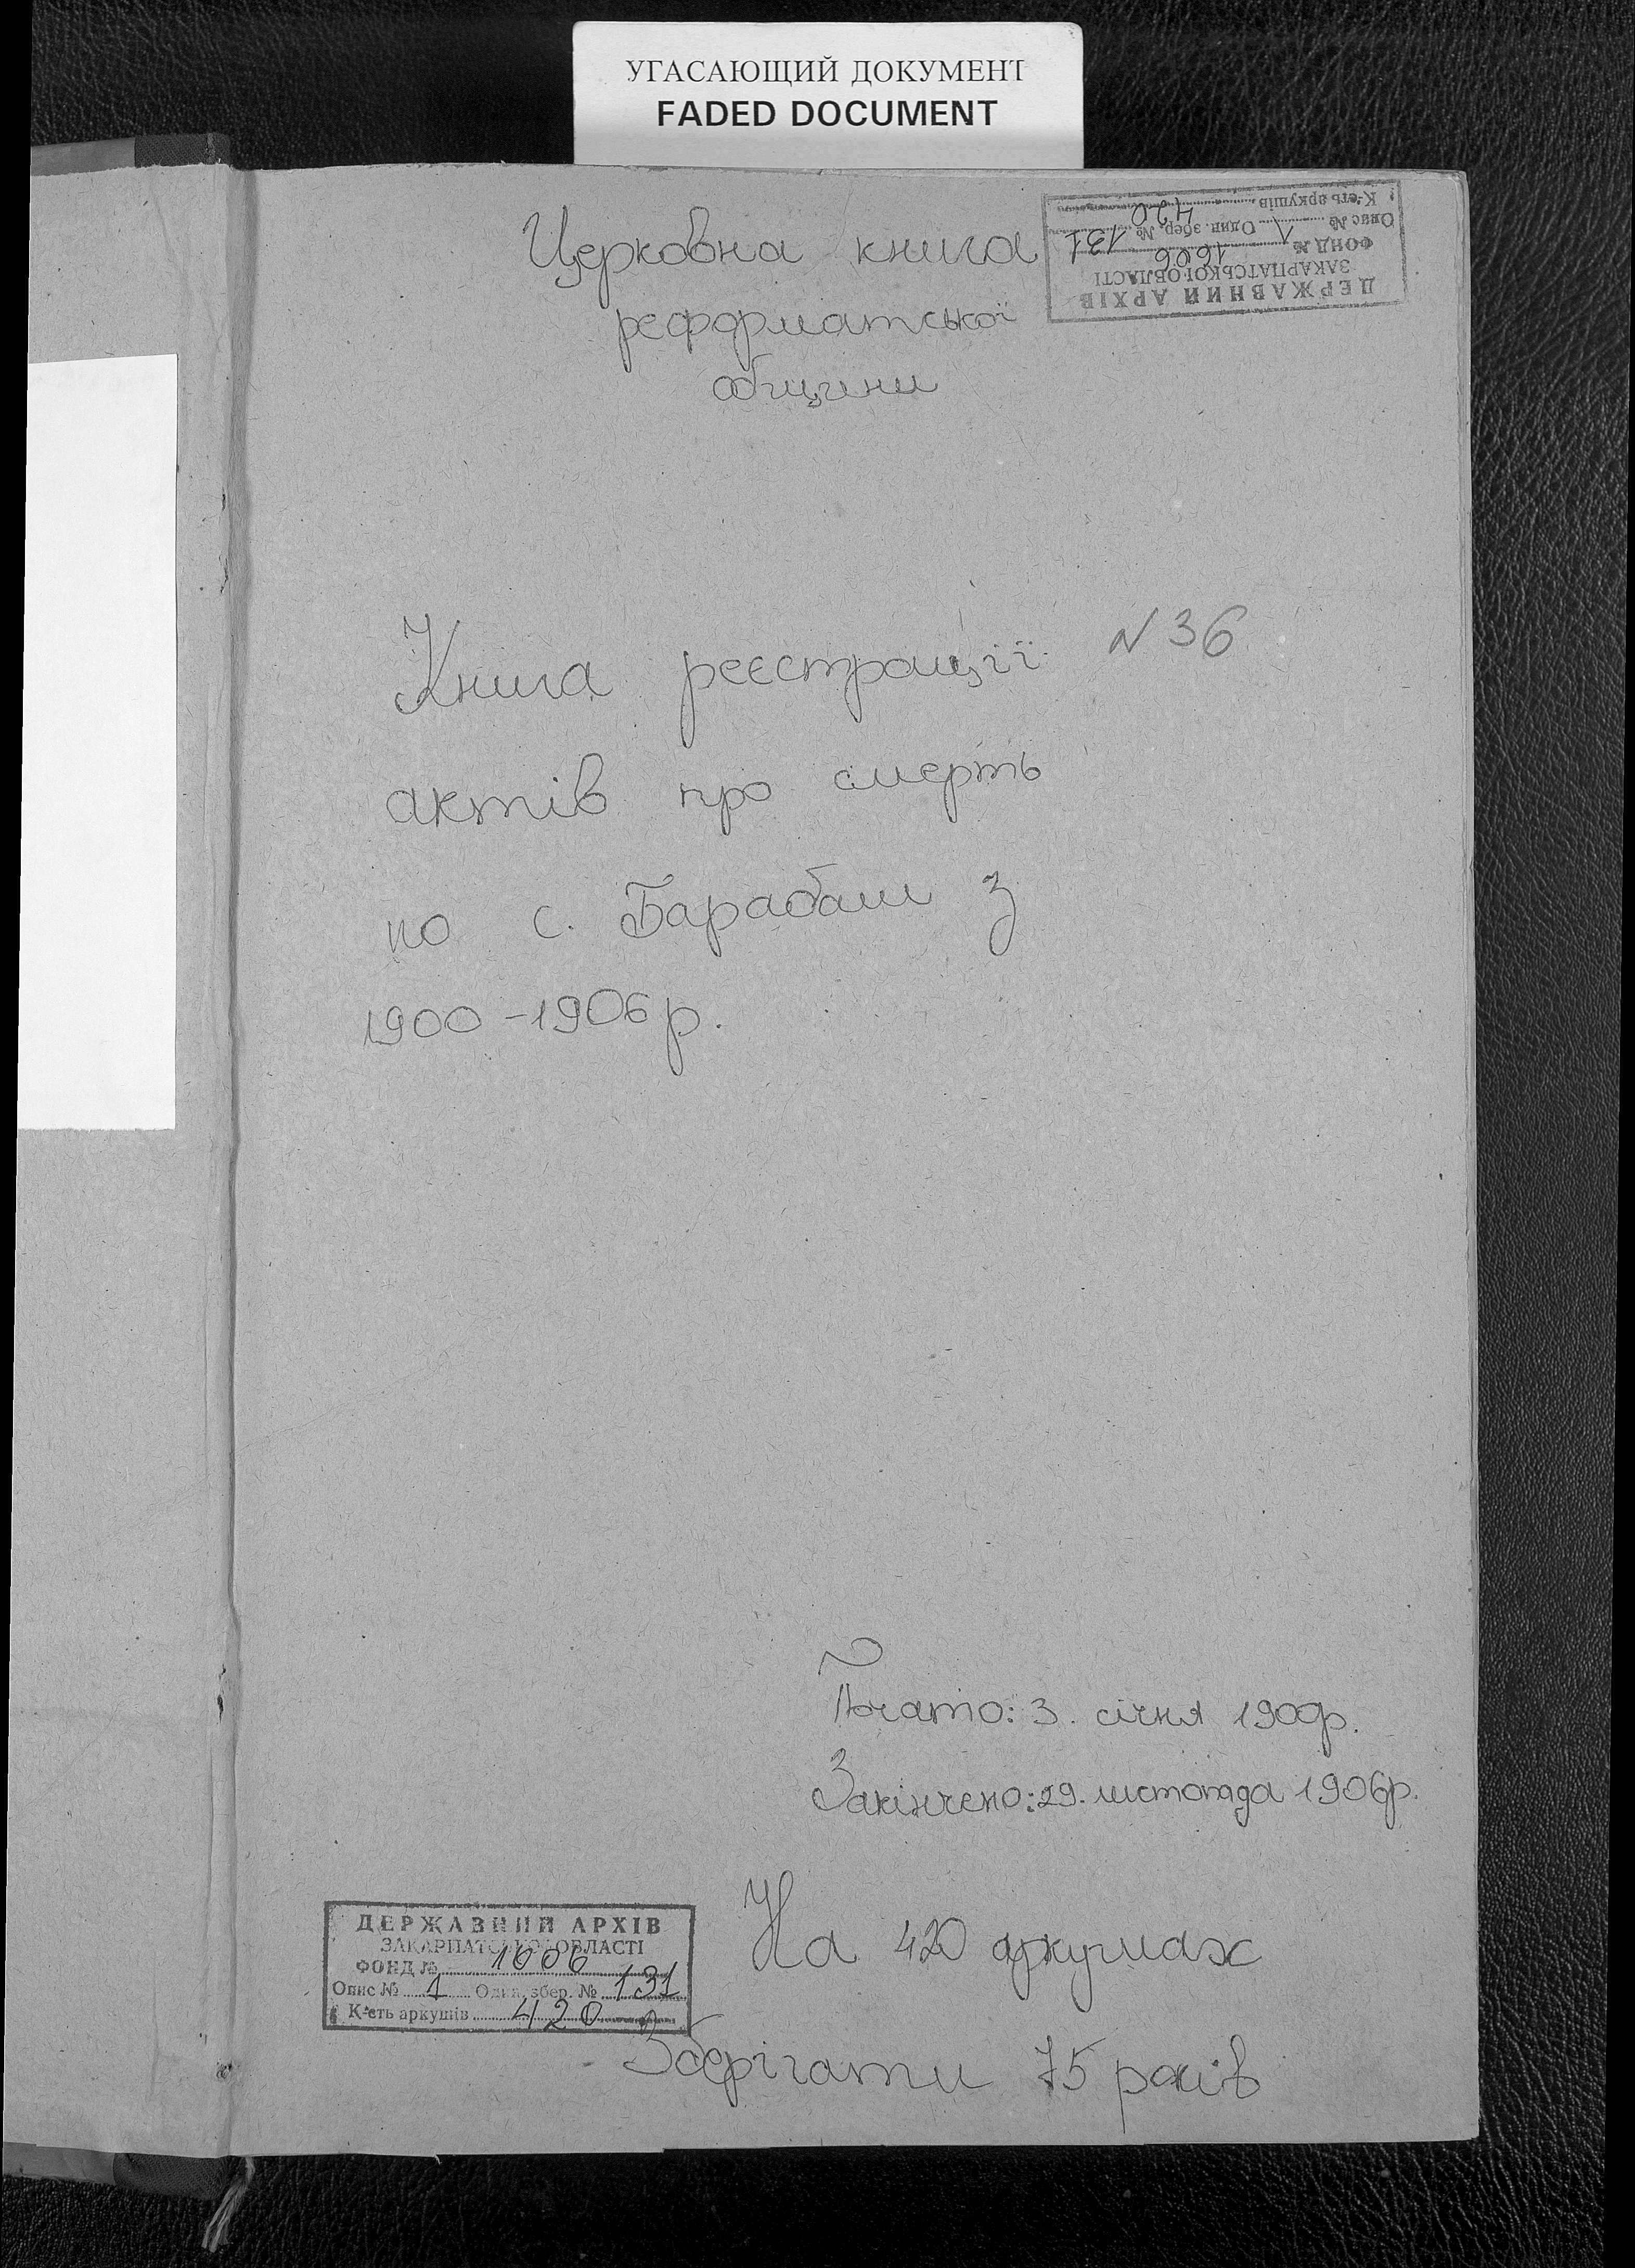 УГАСАЮЩИЙ ДОКУМЕНТ
FADED DOCUMENT
ДЕРЖАВНИЙ АРХІВ
ЗАКАРПАТСЬКОЇ ОБЛАСТІ
ФОНД № 1606
Опис № 1 Один. збер. № 131
К-сть аркушів 420
Церковна книга
реформатської
общини
Книга реєстрації N 36
актів про смерть
по с. Барабаш З
1900-1906 р.
Почато: 3. січня 1900р.
Закінчено: 29. листопада 1906р.
На 420 аркушах
Зберігати 75 років
ДЕРЖАВНИЙ АРХІВ
ЗАКАРПАТСЬКОЇ ОБЛАСТІ
ФОНД № 1606
Опис № 1 Один. збер. № 131
К-сть аркушів 420